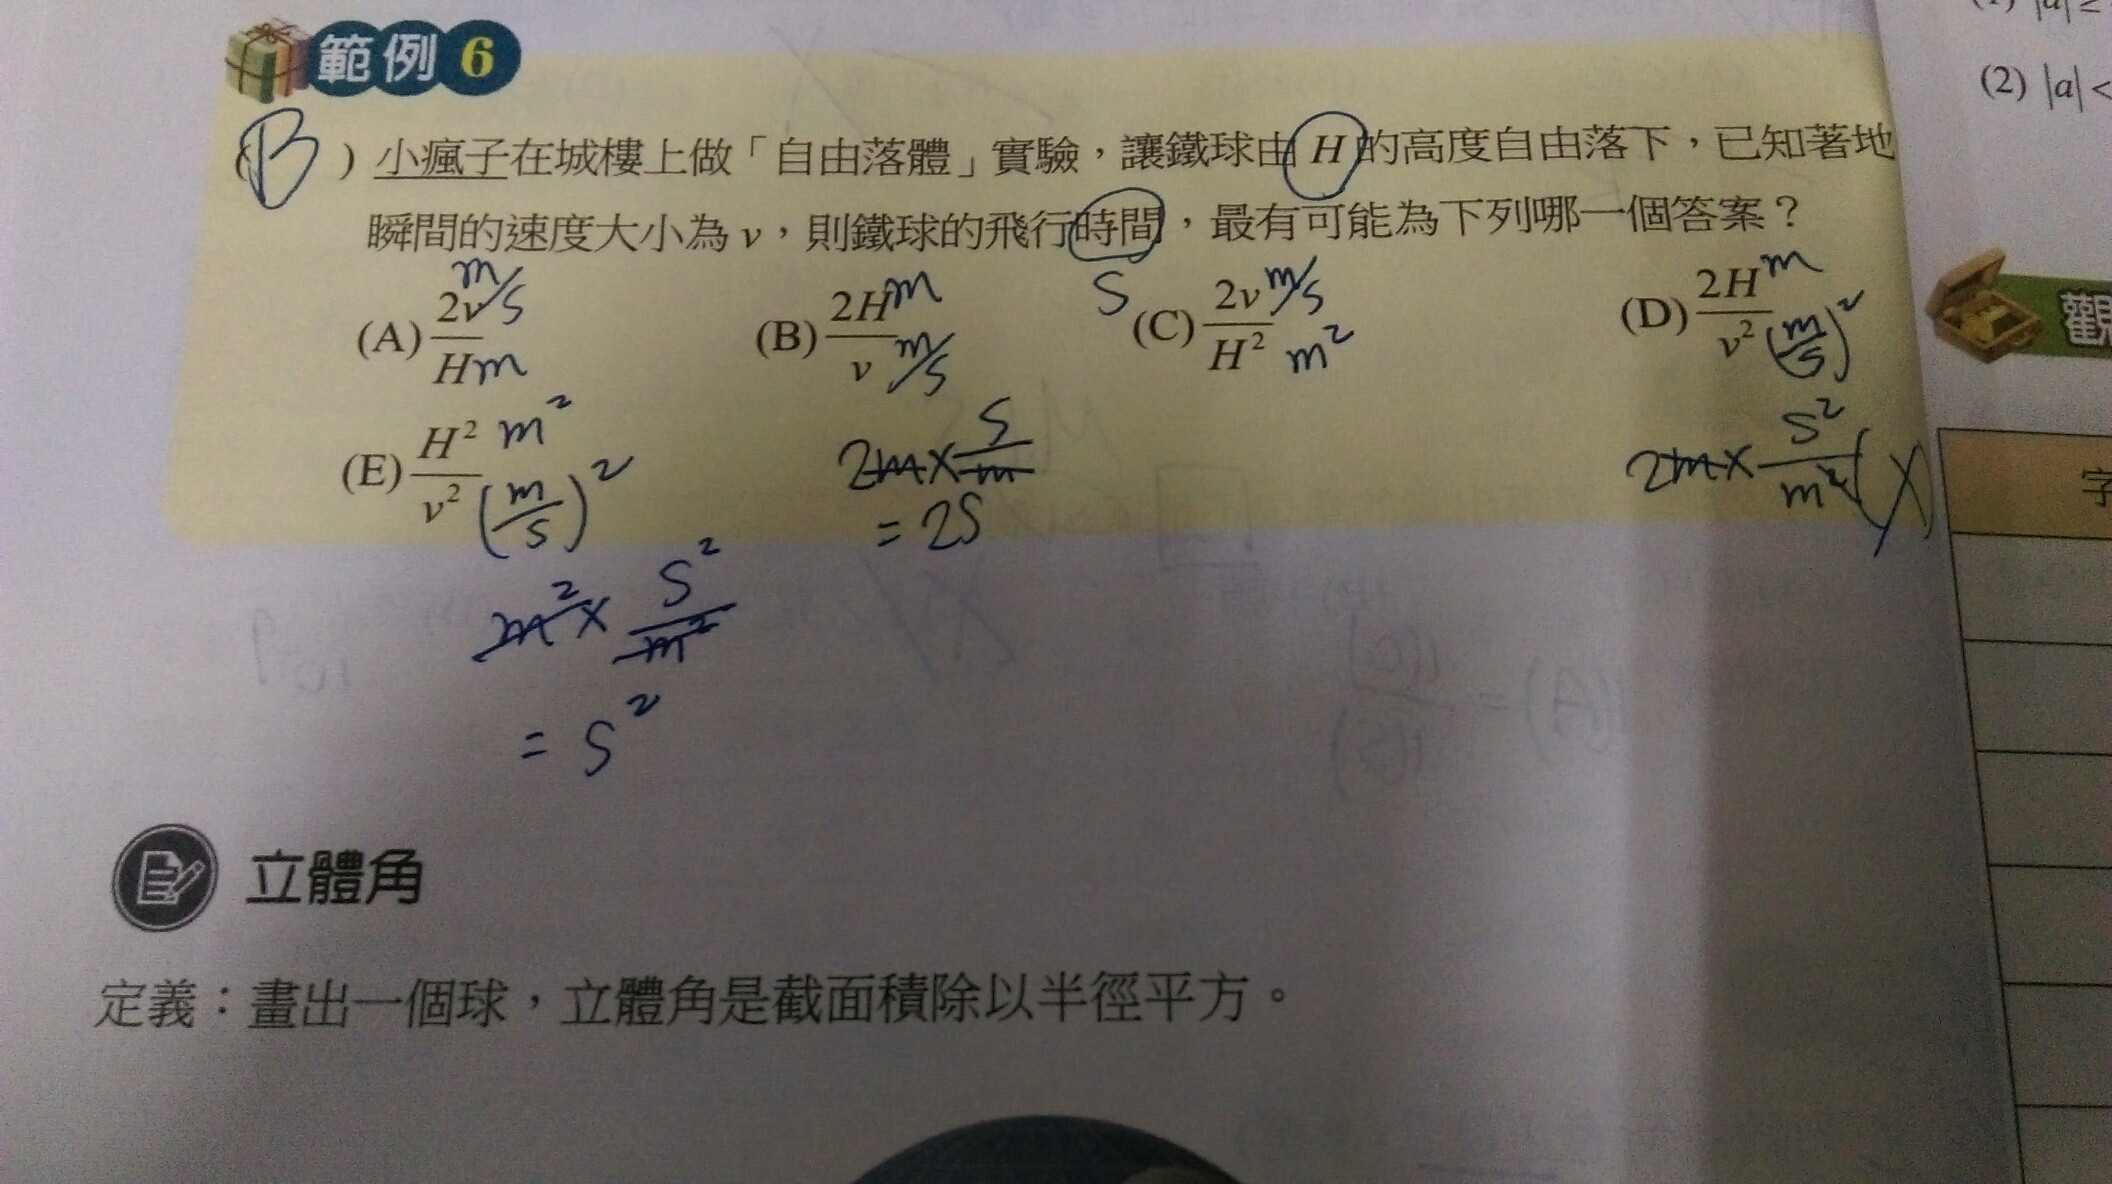 範例 6
(B) 小瘋子在城樓上做「自由落體」實驗，讓鐵球由 H 的高度自由落下，已知著地
瞬間的速度大小為 v，則鐵球的飛行時間，最有可能為下列哪一個答案？
S
(A) 2v/H m/s m
(B) 2H/v m m/s
(C) 2v/H² m/s m²
(D) 2H/v² m (m/s)²
(E) H²/v² m² (m/s)²
2m× s/m
= 2S
2m× s²/m² (X)
m²× s²/m²
= s²
立體角
定義：畫出一個球，立體角是截面積除以半徑平方。
(2) |a| <
觀
字